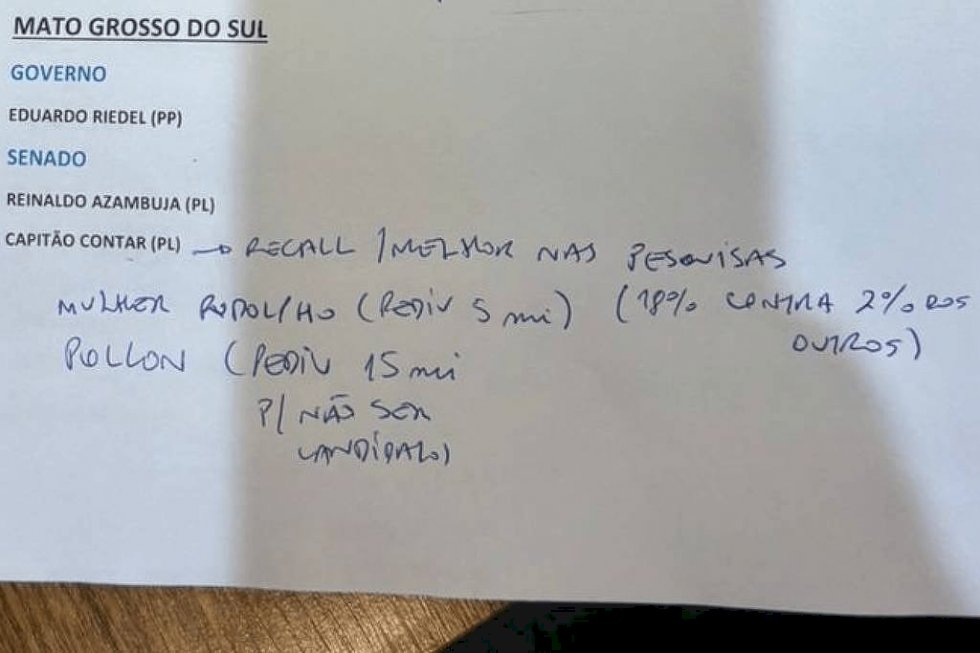 MATO GROSSO DO SUL
GOVERNO
EDUARDO RIEDEL (PP)
SENADO
REINALDO AZAMBUJA (PL)
CAPITÃO CONTAR (PL) → RECALL / MELHOR NAS PESQUISAS
(18% CONTRA 2% DOS
OUTROS)
MULHER RODOLFHO (PEDIU 5 mi)
POLLON (PEDIU 15 mi
P/ NÃO SER
CANDIDATO)